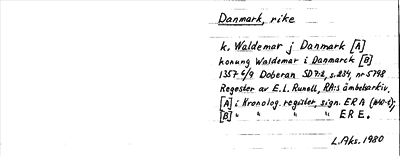 Danmark, rike
k. Waldemar j Danmark [A]
konung Waldemar i Danmarck [B]
1357 6/9 Doberan SD 7:2, s. 234, nr 5798
Regester av E.L. Runell, RA:s ämbetsarkiv.
[A] i Kronolog. register, sign. ER A
[B] " " " ER E.
L.Aks. 1980